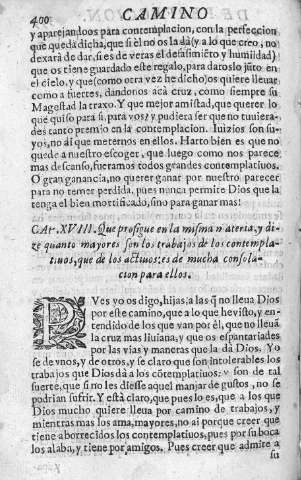 400 CAMINO
y aparejandoos para contemplacion, con la perfeccion
que queda dicha, que si èl no os la dà (y a lo que creo, no
dexarà de dar, si es de veras el desasimiẽto y humildad)
que os tiene guardado este regalo, para daroslo jũto en
el cielo, y que (como otra vez he dicho) os quiere lleuar
como a fuertes, dandonos acà cruz, como siempre su
Magestad la traxo. Y que mejor amistad, que querer lo
que quiso para si, para vos? y pudiera ser que no tuuiera-
des tanto premio en la contemplacion. Iuizios son su-
yos, no ai que meternos en ellos. Harto bien es que no
quede a nuestro escoger, que luego como nos parece
mas descanso, fueramos todos grandes contemplatiuos.
O gran ganancia, no querer ganar por nuestro parecer
para no temer perdida, pues nunca permite Dios que la
tenga el bien mortificado, sino para ganar mas!
CAP. XVIII. Que prosigue en la misma materia, y di-
ze quanto mayores son los trabajos de los contempla-
tiuos, que de los actiuos: es de mucha consola-
cion para ellos.
PVes yo os digo, hijas, a las q̃ no lleua Dios
por este camino, que a lo que he visto, y en-
tendido de los que van por èl, que no lleuã
la cruz mas liuiana, y que os espantariades
por las vias y maneras que la dà Dios. Yo
se de vnos, y de otros, y se claro que son intolerables los
trabajos que Dios dà a los cõtemplatiuos: y son de tal
suerte, que si no les diesse aquel manjar de gustos, no se
podrian sufrir. Y està claro, que pues lo es, que a los que
Dios mucho quiere lleua por camino de trabajos, y
mientras mas los ama, mayores, no ai porque creer que
tiene aborrecidos los contemplatiuos, pues por su boca
los alaba, y tiene por amigos. Pues creer que admite a
su